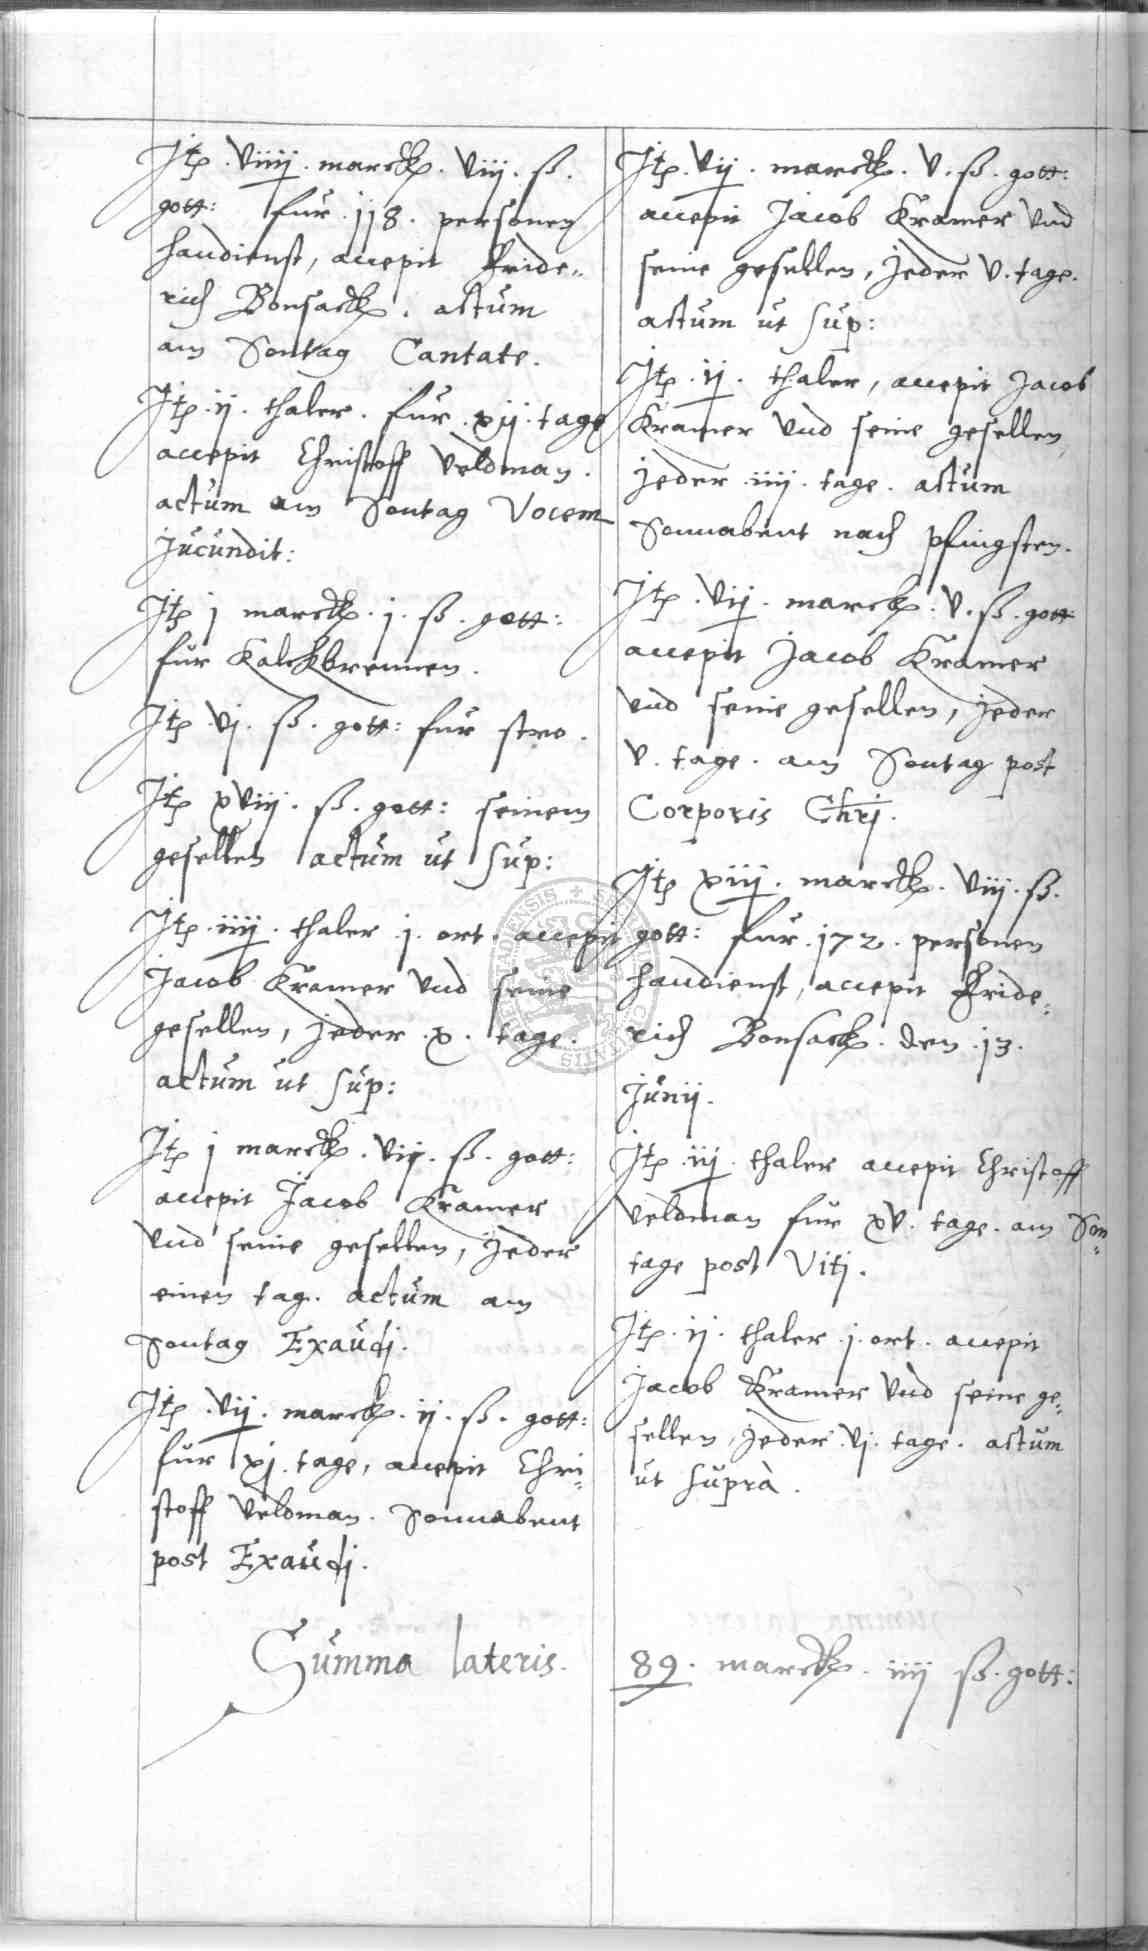 Jtp. viiij. marck. viij. ß.
gott: fur .118. personen
handienst, accepit Fride„
rich Bonsack. actum
am Sontag Cantate.
Jtp. ij. thaler. fur .xij. tage
accepit Christoff Veldman.
actum am Sontag Vocem
Jucundit:
Jtp j marck. j. ß. gott:
fur Kalckbrennen.
Jtp. vj. ß. gott: fur stro.
Jtp xviij. ß. gott: seinem
gesellen actum ut sup:
Jtp. iiij. thaler .j. ort. accepit
Jacob Kramer vnd seine
gesellen, jeder .x. tage.
actum ut sup:
Jtp j marck. vij. ß. gott:
accepit Jacob Kramer
vnd seine gesellen, jeder
einen tag. actum am
Sontag Exaudj.
Jtp. vij. marck. ij. ß. gott:
fur xj. tage, accepit Chri„
stoff Veldman. Sonnabent
post Exaudj.
Jtp. vij. marck. v. ß. gott:
accepit Jacob Kramer vnd
seine gesellen, jeder v. tage.
actum ut sup:
Jtp. ij. thaler, accepit Jacob
Kramer vnd seine gesellen,
jeder .iiij. tage. actum
Sonnabent nach pfingsten.
Jtp. vij. marck. v. ß. gott
accepit Jacob Kramer
vnd seine gesellen, jeder
v. tage. am Sontag post
Corporis Chrj.
Jtp xiij. marck. viij. ß.
gott: fur .172. personen
handienst, accepit Fride„
rich Bonsack. den .13.
Junij.
Jtp. iij. thaler accepit Christoff
Veldman fur xv. tage. am Son„
tage post Vitj.
Jtp. ij. thaler .j. ort. accepit
Jacob Kramer vnd seine ge„
sellen, jeder .vj. tage. actum
ut suprà.
Summa lateris. 89. marck. iiij ß. gott: